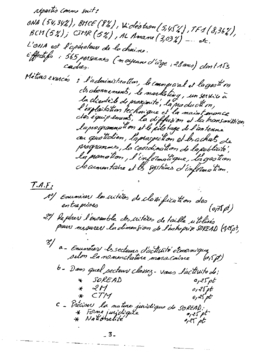 repartis comme suit :
ONA (54,34%), BMCE (8%), Viclostrum (5,45%), TF1 (8,36%),
BCM (5%), CTNR (5%), AL Amana (3,03%) ... etc.
L'ONA est l'opérateur de la chaine.
Effectifs : 565 personnes (moyenne d'age : 28 ans) dont 153
cadres.
Métiers exercés : l'administration, le commercial et la gestion
d'abonnements, le marketing, un service à
la clientèle de proximité, la production,
l'exploitation technique et la maintenance
des équipements, la diffusion et la transmission
la programmation et le pilotage de l'antenne
au quotidien, la prospection et les achats de
programmes, la coordination de la publicité,
la promotion, l'informatique, la gestion
documentaire et les systèmes d'information.
T.A.F :
1°/ Enumérer les critères de classification des
entreprises (0,75 pt)
2°/ Replacer l'ensemble des critères de taille utilisés
pour mesurer la dimension de l'entreprise SOREAD
3°/ a - Enumérer les secteurs d'activité économique
selon la nomenclature marocaine
b - Dans quel secteur classez-vous l'activité de :
* SOREAD 0,25 pt
* 2M 0,25 pt
* CTM 0,25 pt
c - Préciser la nature juridique de SOREAD :
* Forme juridique 0,25 pt
* Nationalité 0,25 pt
- 3 -